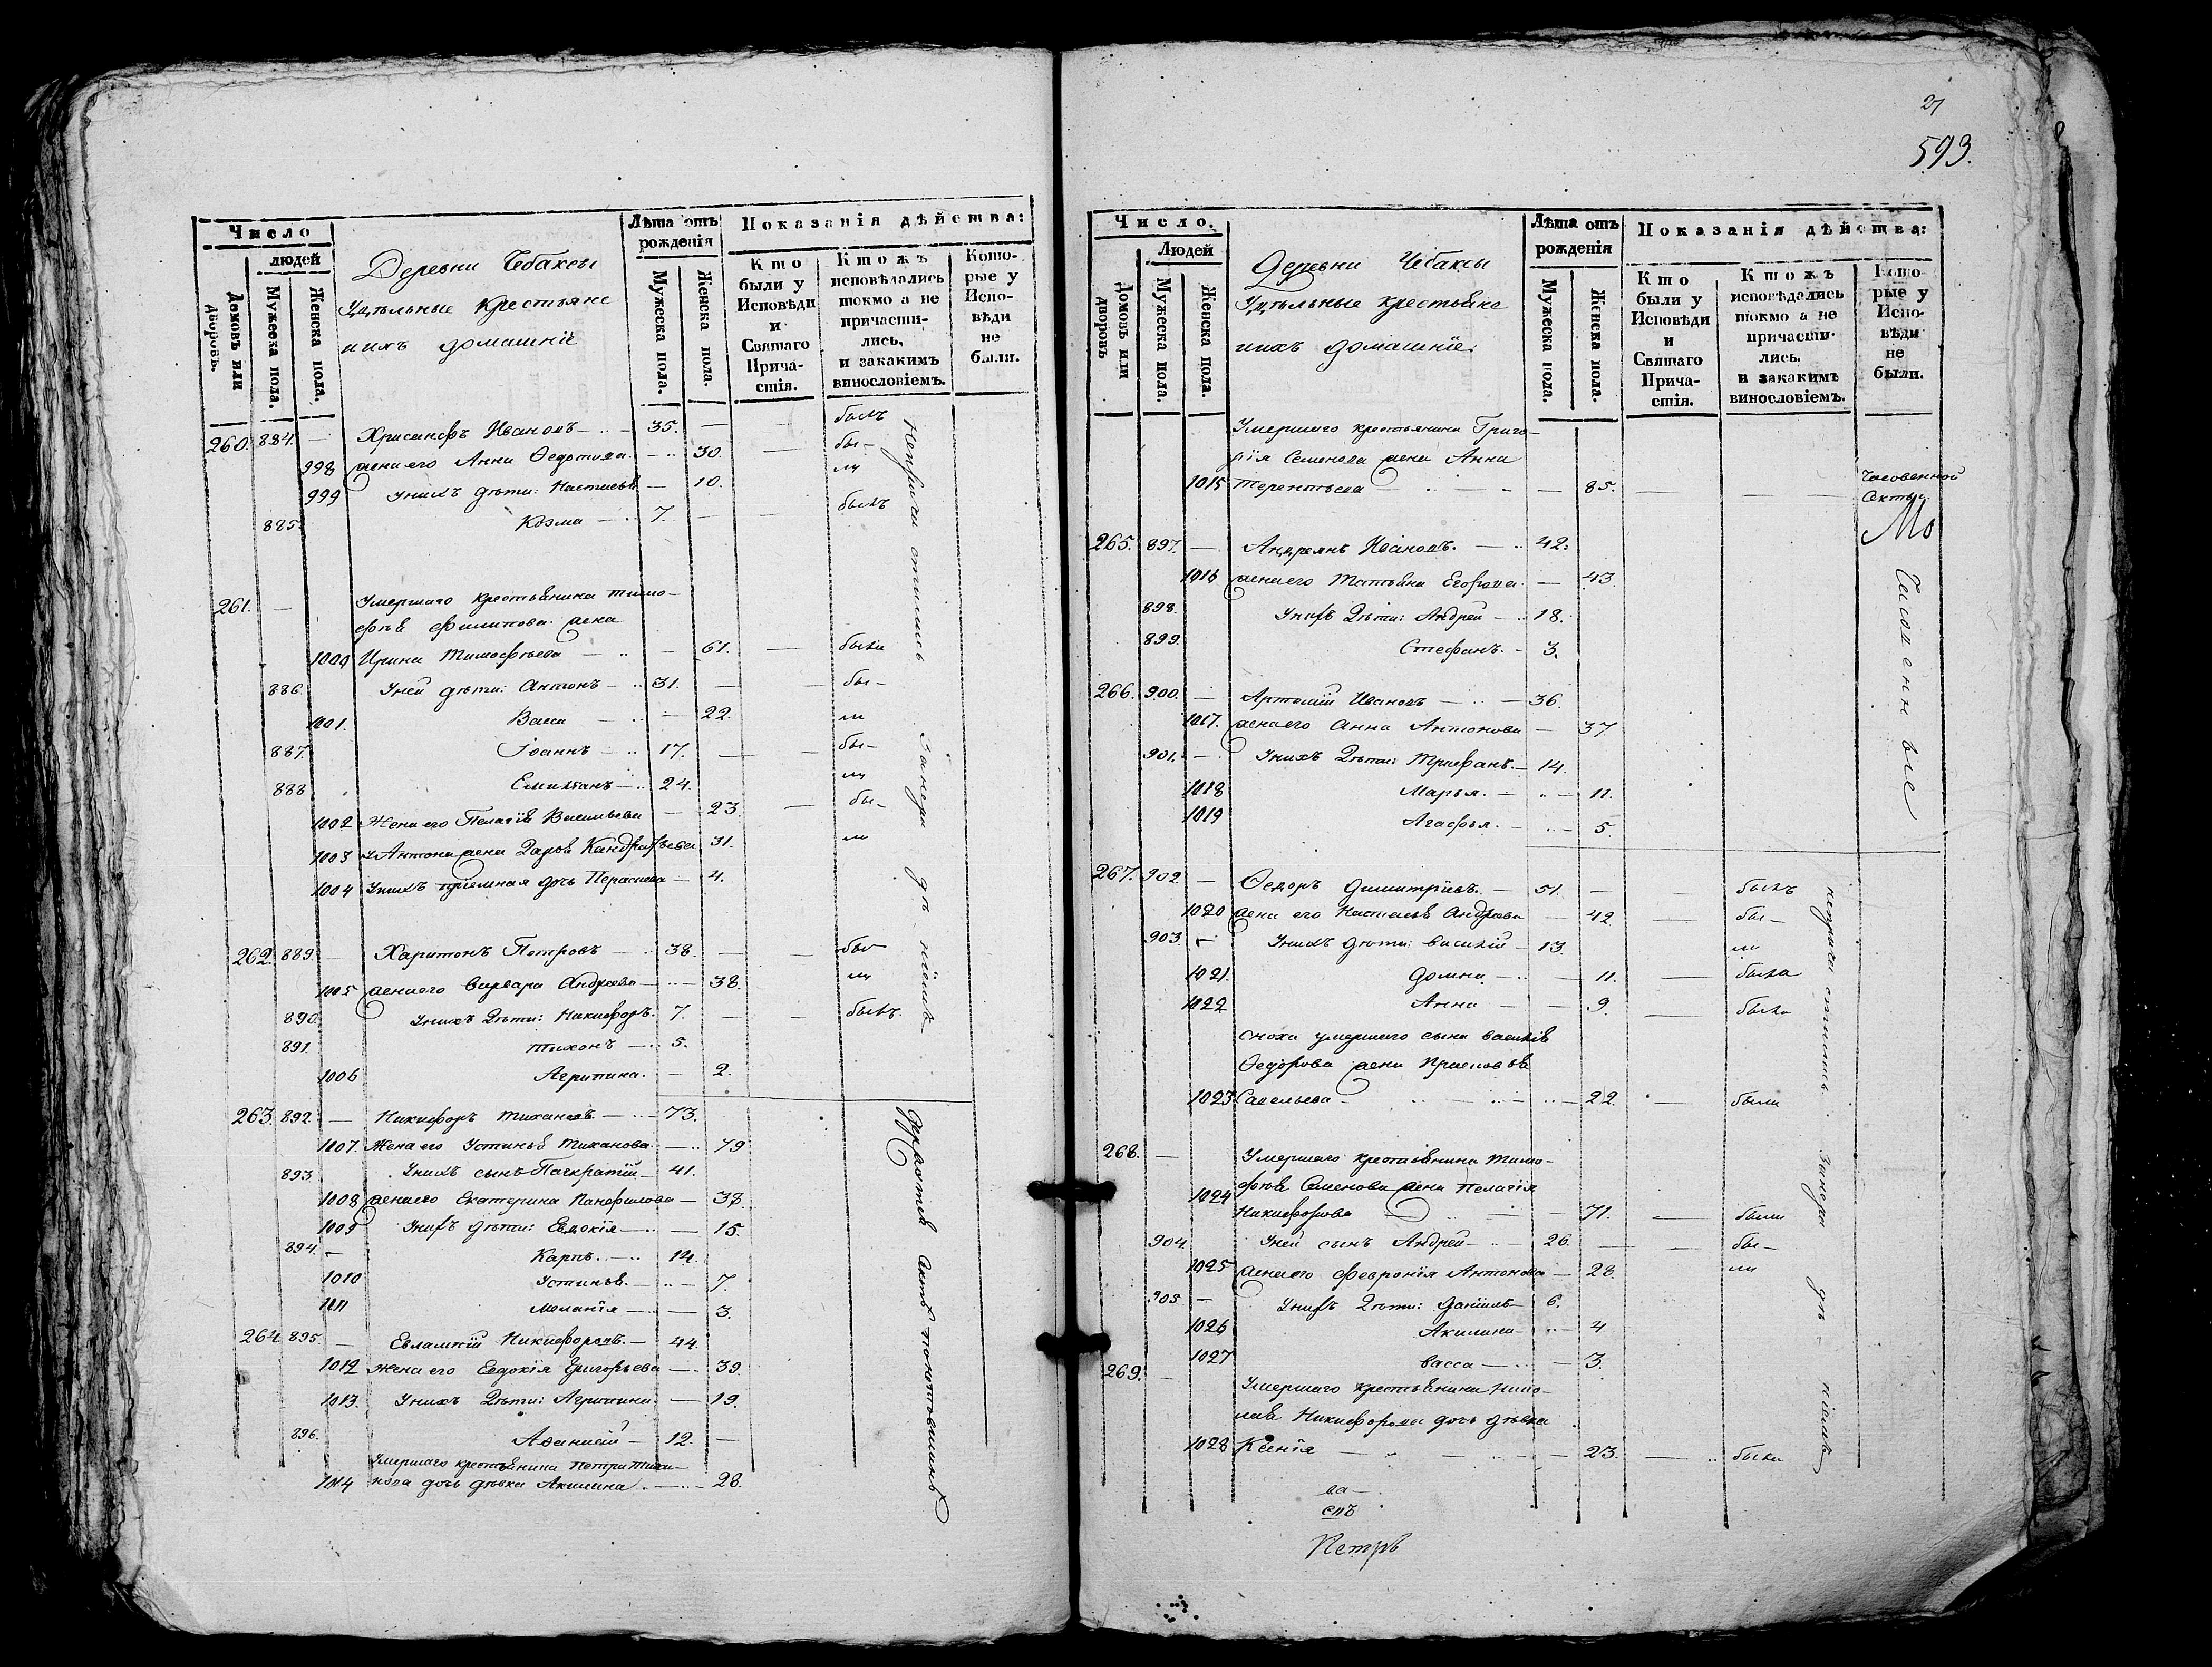 Число
людей
Домовъ или дворовъ.
Мужеска пола.
Женска пола.
Деревни Чебаксы
Удѣльные крестьяне
и ихъ домашніе
Лѣта отъ рожденія
Мужеска пола.
Женска пола.
Показанія дѣйства:
Кто были у Исповѣди и Святаго Причастія.
Ктожъ исповѣдались токмо а не причастились, и закакимъ винословіемъ.
Которые у Исповѣди не были.
260. 884. — Хрисанфъ Ивановъ — 35. — — былъ
998 жена его Анна Ѳедотова — 30. — бы-
999 У нихъ дѣти: Настасья — 10. ли
885. Козма — 7. — — былъ
261. — Умершаго крестьянина Тимо-
фѣя Филипова жена
1000 Ирина Тимофѣева — — 61. — была
886. У ней дѣти: Антонъ — 31. — — бы-
1001. Васса — — 22. ли
887. Іоаннъ — 17. — — бы-
888 Емиліанъ — 24. ли
1002 Жена его Пелагія Васильева — 23. — бы-
1003 У Антона жена Дарья Кандратьева 31. ли
1004 У нихъ приемная дочь Параскева — 4.
Непричастились за нерадѣніемъ
262. 889. — Харитонъ Петровъ — 38. — — бы-
1005 жена его Варвара Андреева — 38. ли
890. У нихъ дѣти: Никифоръ. 7. — — былъ.
891. Тихонъ — 5.
1006 Агрипина. — 2.
263. 892. — Никифоръ Тихановъ. — 73.
1007. Жена его Устинья Тиханова — 79
893. У нихъ сынъ Панкратій — 41.
1008 жена его Екатерина Панфилова — 38.
1009 У нихъ дѣти: Евдокія — — 15.
894. — Карпъ. — 14.
1010 Устинья. — — 7.
1011 Меланія — — 3.
264 895. — Евлампій Никифоровъ. — 44.
1012 Жена его Евдокія Григорьева — 39.
1013. У нихъ дѣти: Агрипина — 19.
896. Аѳанасій — 12. —
Умершаго крестьянина Петра Тиха-
1014 нова дочь дѣвка Акилина. — 28.
секты
27
593.
Число.
Людей
Домовъ или дворовъ
Мужеска пола.
Женска пола.
Деревни Чебаксы
Удѣльные крестьяне
и ихъ домашніе:
Лѣта отъ рожденія
Мужеска пола.
Женска пола.
Показанія дѣйства:
Кто были у Исповѣди и Святаго Причастія.
Ктожъ исповѣдались токмо а не причастились. и закакимъ винословіемъ.
Которые у Исповѣди не были.
Умершаго крестьянина Григо-
рія Семенова жена Анна
1015 Терентьева — — 85. — — — Часовенной
секты.
265. 897. — Андреянъ Ивановъ. — 42.
1016 жена его Татьяна Егорова. — 43.
898. У нихъ дѣти: Андрей — 18.
899. Стефанъ. — 3.
266. 900. — Артемій Ивановъ — 36.
1017. жена его Анна Антонова — 37
901. — У нихъ дѣти: Трифанъ. — 14.
1018 Марья. — — 11.
1019 Агафья. — — 5.
267. 902 — Ѳедоръ Димитріевъ. — 51. — — былъ
1020 жена его Настасья Андреева — 42 — бы-
903. — У нихъ дѣти: Василій — 13. ли
1021. Домна — — 11. — была
1022 Анна — — 9. — была
сноха умершаго сына Василія
Ѳедорова жена Прасковья
1023 Савельева — — 22. — была
непричастились. За нерадѣніемъ
268. — Умершаго крестьянина Тимо-
фѣя Семенова жена Пелагія
1024 Никифорова — — 71. — была
904. У ней сынъ Андрей — 26. — — бы-
1025 жена его Февронія Антонова — 28. ли
905. — У нихъ дѣти: Даніилъ — 6.
1026 Акилина — — 4
1027 Васса — — 3.
269. — Умершаго крестьянина Нико-
лая Никифорова дочь дѣвка
1028 Ксенія — — 23. — была
Петръ